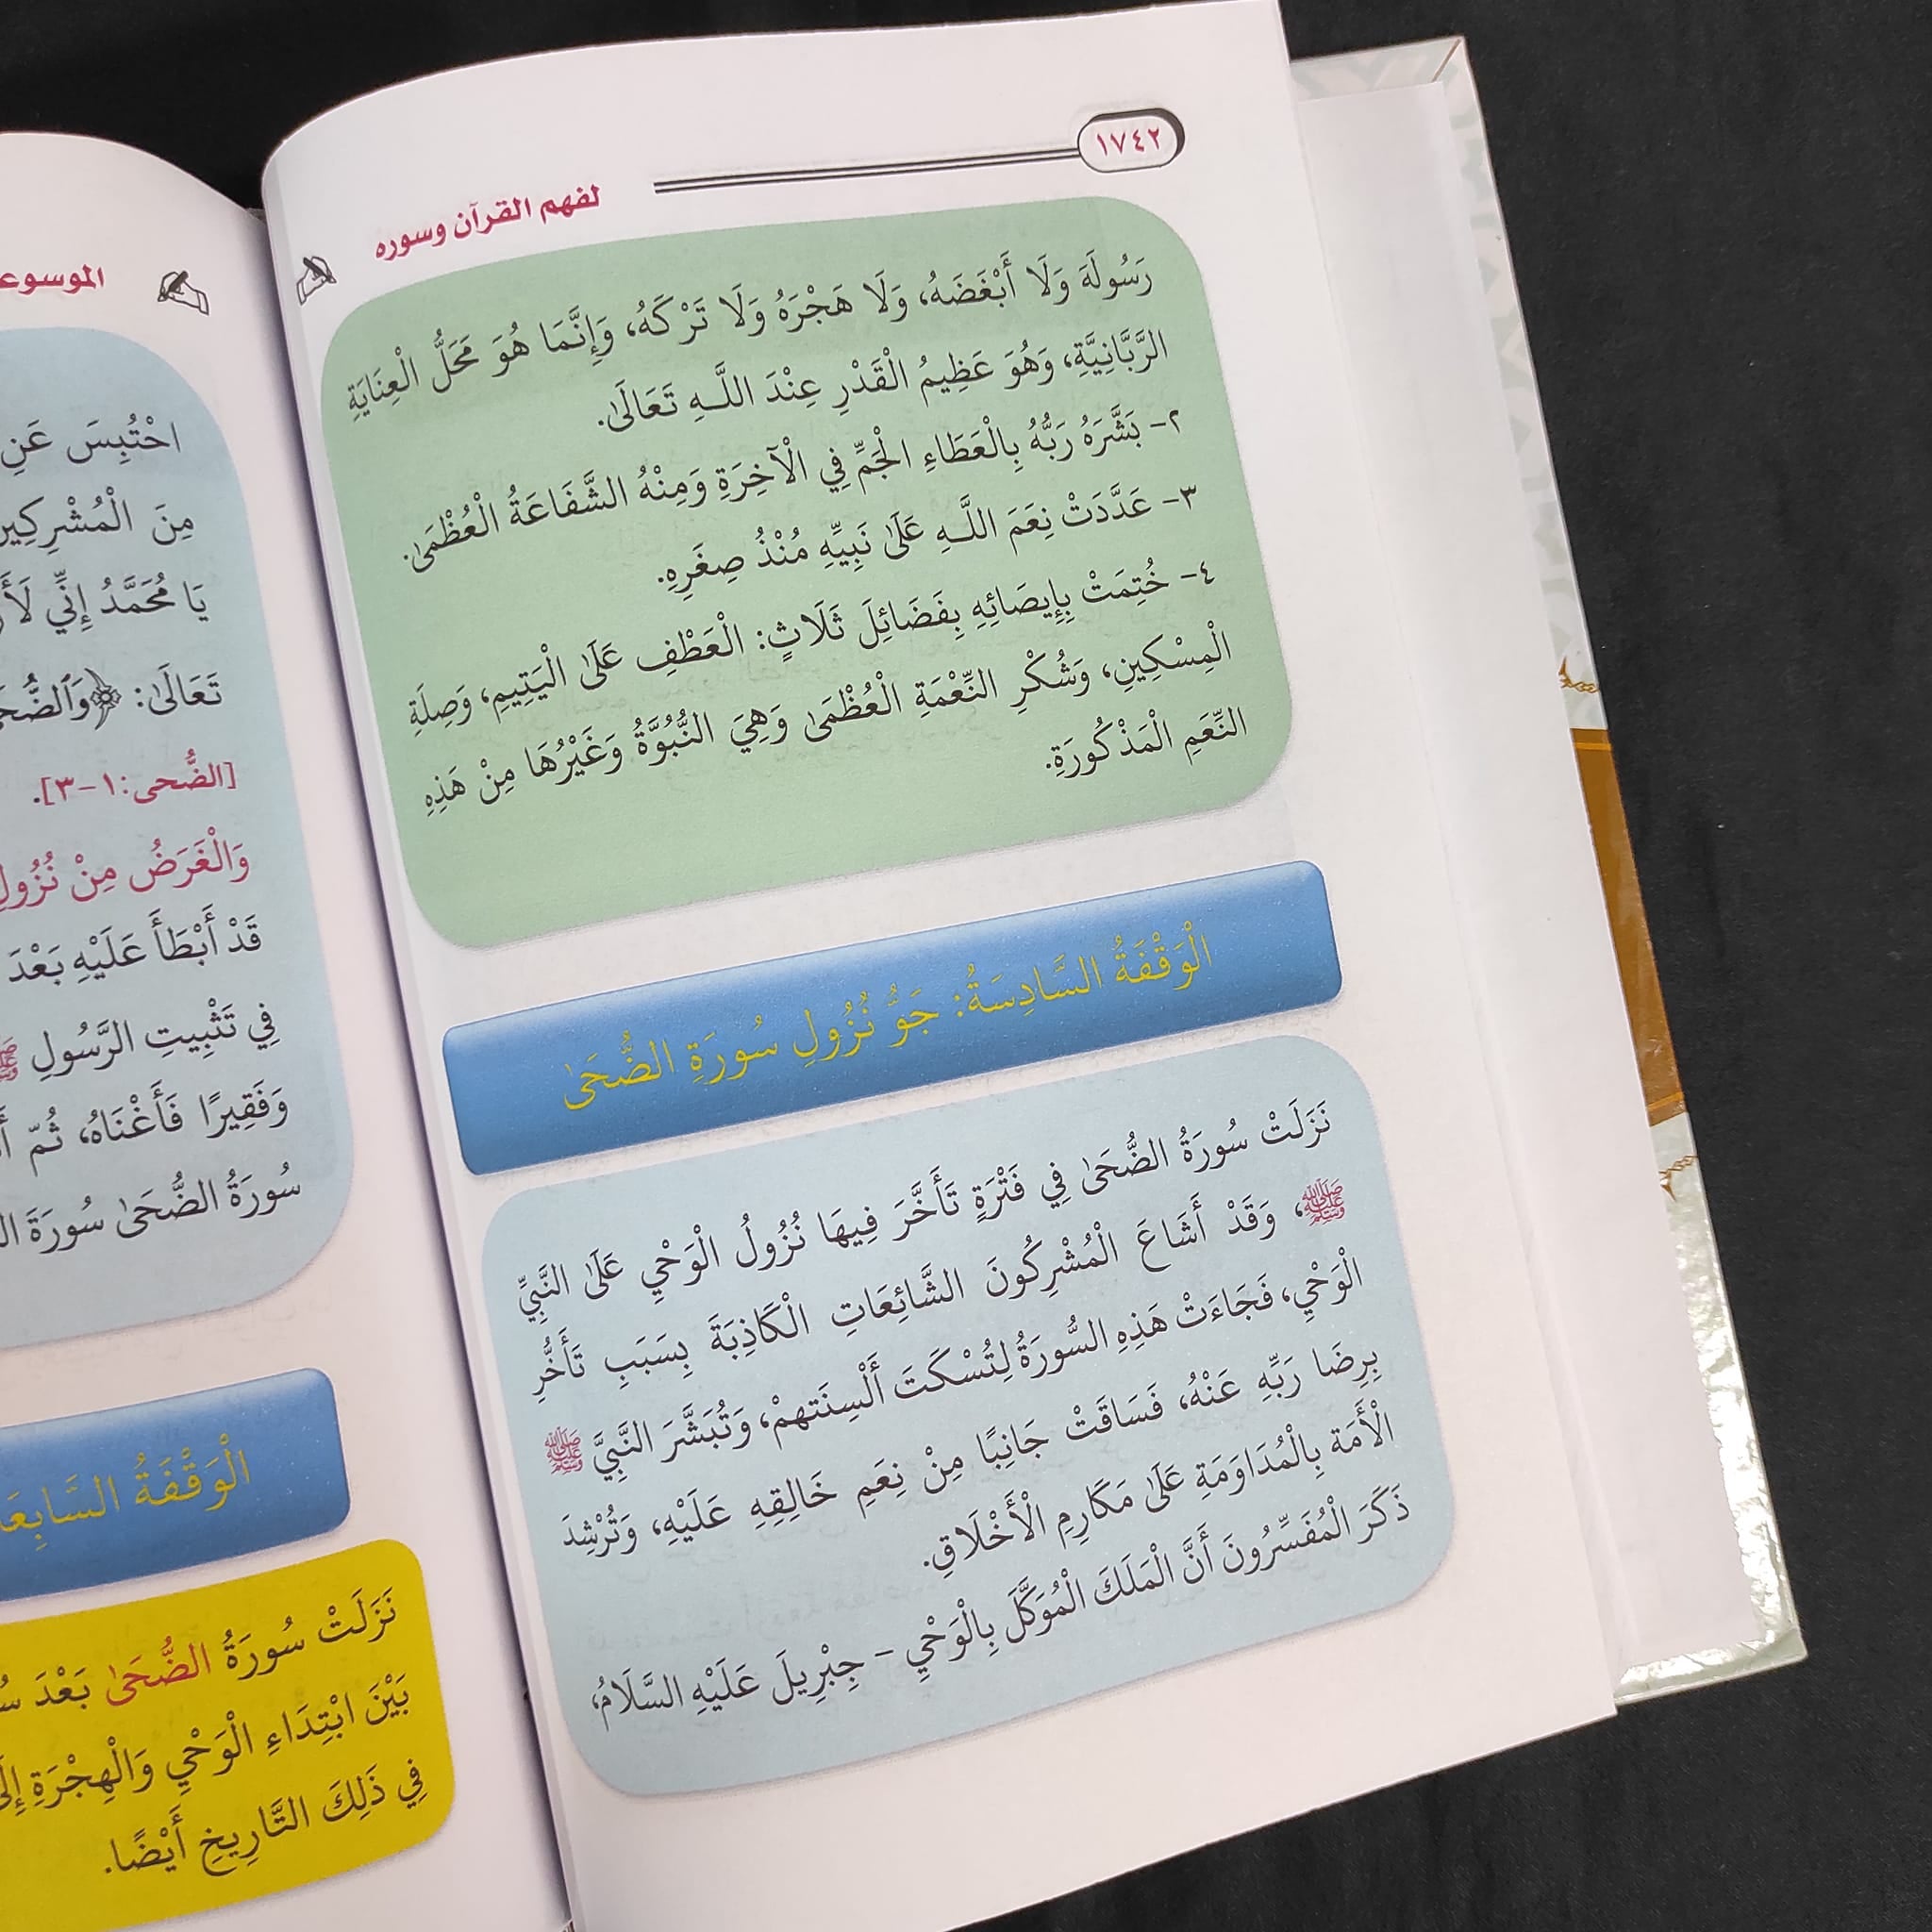 ١٧٤٢
لفهم القرآن وسوره
رَسُولَهَ وَلَا أَبْغَضَهُ، وَلَا هَجْرَهُ وَلَا تَرْكَهُ، وَإِنَّمَا هُوَ مَحَلُّ الْعِنَايَةِ
الرَّبَّانِيَّةِ، وَهُوَ عَظِيمُ الْقَدْرِ عِنْدَ اللَّـهِ تَعَالَىٰ.
٢- بَشَّرَهُ رَبُّهُ بِالْعَطَاءِ الْجَمِّ فِي الْآخِرَةِ وَمِنْهُ الشَّفَاعَةُ الْعُظْمَىٰ.
٣- عَدَّدَتْ نِعَمَ اللَّـهِ عَلَىٰ نَبِيِّهِ مُنْذُ صِغَرِهِ.
٤- خُتِمَتْ بِإِيصَائِهِ بِفَضَائِلَ ثَلَاثٍ: الْعَطْفِ عَلَىٰ الْيَتِيمِ، وَصِلَةِ
الْمِسْكِينِ، وَشُكْرِ النِّعْمَةِ الْعُظْمَىٰ وَهِيَ النُّبُوَّةُ وَغَيْرُهَا مِنْ هَذِهِ
النِّعَمِ الْمَذْكُورَةِ.
الْوَقْفَةُ السَّادِسَةُ: جَوُّ نُزُولِ سُورَةِ الضُّحَىٰ
نَزَلَتْ سُورَةُ الضُّحَىٰ فِي فَتْرَةٍ تَأَخَّرَ فِيهَا نُزُولُ الْوَحْيِ عَلَىٰ النَّبِيِّ
ﷺ، وَقَدْ أَشَاعَ الْمُشْرِكُونَ الشَّائِعَاتِ الْكَاذِبَةَ بِسَبَبِ تَأَخُّرِ
الْوَحْيِ، فَجَاءَتْ هَذِهِ السُّورَةُ لِتُسْكَتَ أَلْسِنَتهمْ، وَتُبَشَّرَ النَّبِيَّ ﷺ
بِرِضَا رَبِّهِ عَنْهُ، فَسَاقَتْ جَانِبًا مِنْ نِعَمِ خَالِقِهِ عَلَيْهِ، وَتُرْشِدَ
الْأُمَة بِالْمُدَاوَمَةِ عَلَىٰ مَكَارِمِ الْأَخْلَاقِ.
ذَكَرَ الْمُفَسِّرُونَ أَنَّ الْمَلَكَ الْمُوَكَّلَ بِالْوَحْيِ - جِبْرِيلَ عَلَيْهِ السَّلَامُ،
احْتُبِسَ عَنِ
مِنَ الْمُشْرِكِين
يَا مُحَمَّدُ إِنِّي
تَعَالَىٰ: ﴿وَٱلضُّحَ
[الضُّحى:١-٣].
وَالْغَرَضُ مِنْ نُزُولِ
قَدْ أَبْطَأَ عَلَيْهِ بَعْدَ
فِي تَثْبِيتِ الرَّسُولِ ﷺ
وَفَقِيرًا فَأَغْنَاهُ، ثُمّ
سُورَةُ الضُّحَىٰ سُورَةَ
الْوَقْفَةُ السَّابِعَ
نَزَلَتْ سُورَةُ الضُّحَىٰ بَعْدَ
بَيْنَ ابْتِدَاءِ الْوَحْيِ وَالْهِجْرَةِ
فِي ذَلِكَ التَّارِيخِ أَيْضًا.